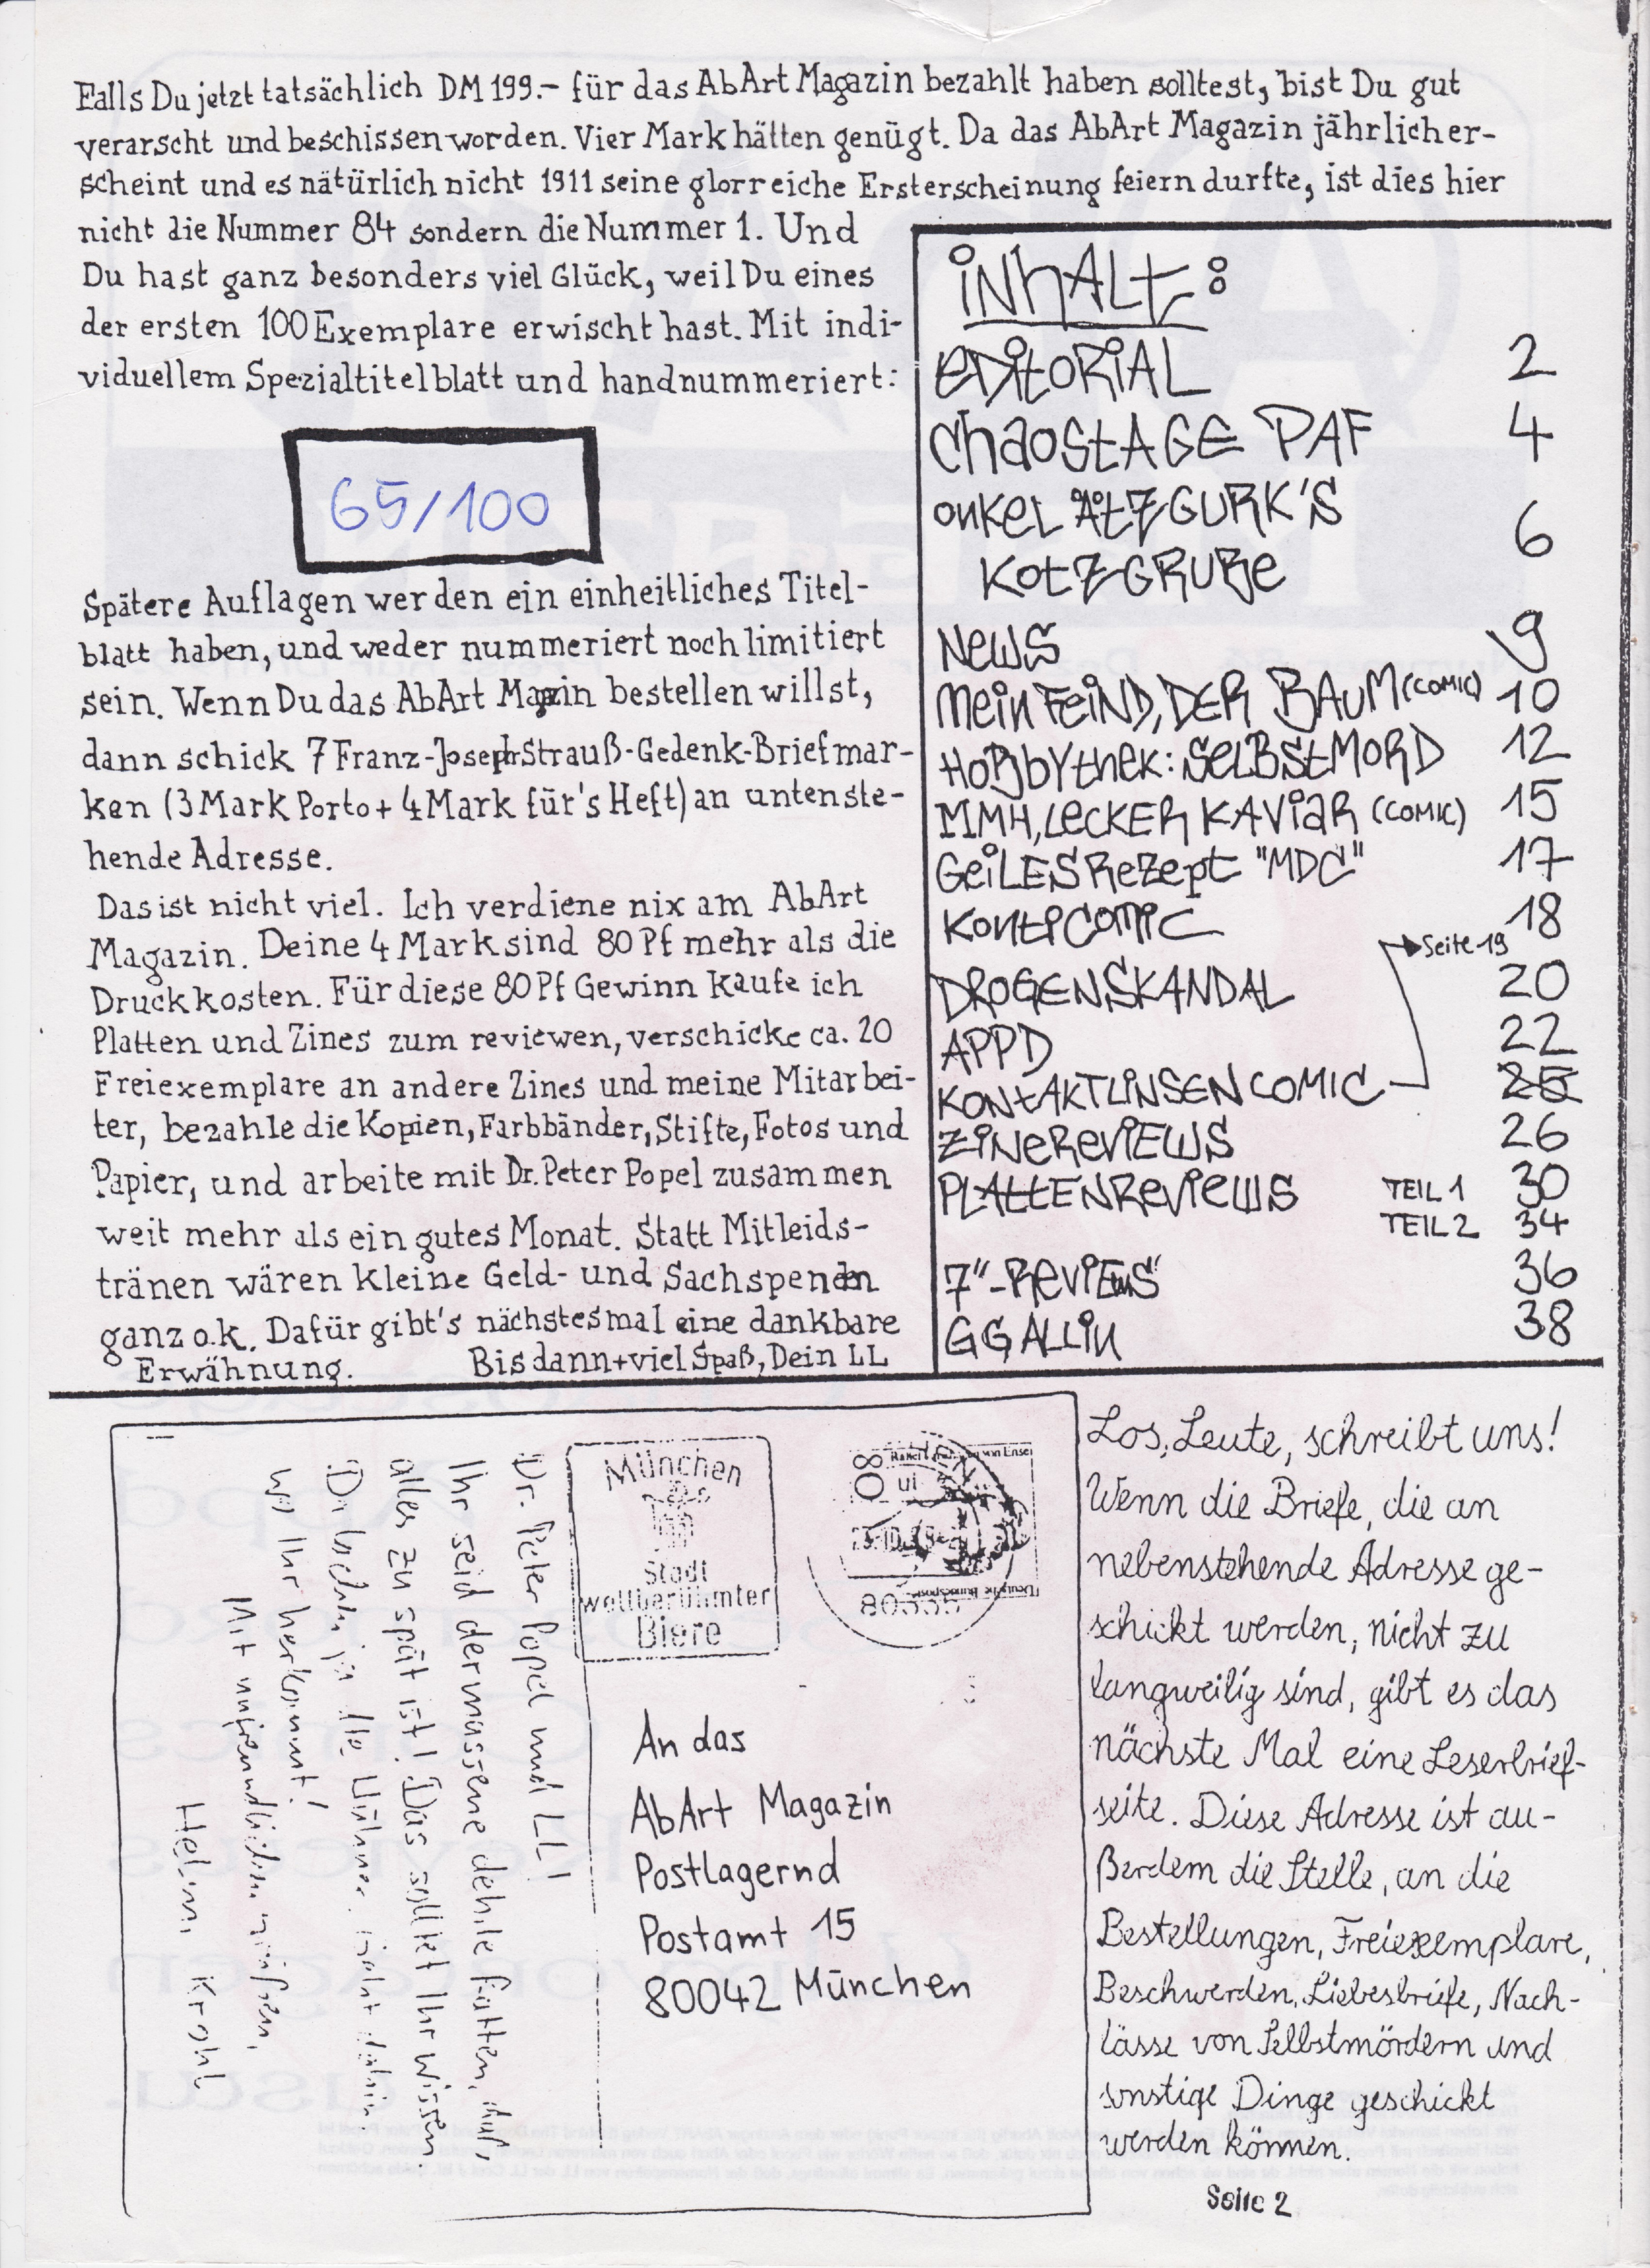 Falls Du jetzt tatsächlich DM 199.- für das AbArt Magazin bezahlt haben solltest, bist Du gut
verarscht und beschissen worden. Vier Mark hätten genügt. Da das AbArt Magazin jährlich er-
scheint und es nätürlich nicht 1911 seine glorreiche Ersterscheinung feiern durfte, ist dies hier
nicht die Nummer 84 sondern die Nummer 1. Und
Du hast ganz besonders viel Glück, weil Du eines
der ersten 100 Exemplare erwischt hast. Mit indi-
viduellem Spezialtitelblatt und handnummeriert:
65/100
Spätere Auflagen werden ein einheitliches Titel-
blatt haben, und weder nummeriert noch limitiert
sein. Wenn Du das AbArt Magazin bestellen willst,
dann schick 7 Franz-Joseph-Strauß-Gedenk-Briefmar-
ken (3 Mark Porto + 4 Mark für's Heft) an untenste-
hende Adresse.
Das ist nicht viel. Ich verdiene nix am AbArt
Magazin. Deine 4 Mark sind 80 Pf mehr als die
Druckkosten. Für diese 80 Pf Gewinn kaufe ich
Platten und Zines zum reviewen, verschicke ca. 20
Freiexemplare an andere Zines und meine Mitarbei-
ter, bezahle die Kopien, Farbbänder, Stifte, Fotos und
Papier, und arbeite mit Dr. Peter Popel zusammen
weit mehr als ein gutes Monat. Statt Mitleids-
tränen wären kleine Geld- und Sachspenden
ganz o.k. Dafür gibt's nächstesmal eine dankbare
Erwähnung. Bis dann + viel Spaß, Dein LL
INHALT:
EDITORIAL 2
CHAOSTAGE PAF 4
ONKEL ÅTZGURK'S
KOTZGRUBE 6
NEWS 9
MEIN FEIND, DER BAUM (COMIC) 10
HOBBYTHEK: SELBSTMORD 12
MMH, LECKER KAVIAR (COMIC) 15
GEILES REZEPT "MDC" 17
KONTICOMIC 18
Seite 19
DROGENSKANDAL 20
APPD 22
KONTAKTLINSENCOMIC 25
ZINEREVIEWS 26
PLATTENREVIEWS TEIL 1 30
TEIL 2 34
7"-REVIEWS 36
GG ALLIN 38
Dr. Peter Popel und LL!
Ihr seid dermassene dehile
alles zu spät ist! Das solltet Ihr wissen.
wo Ihr herkommt!
Mit
Helmi Krohl
München
Stadt
weltberühmter
Biere
80
80335
An das
AbArt Magazin
Postlagernd
Postamt 15
80042 München
Los, Leute, schreibt uns!
Wenn die Briefe, die an
nebenstehende Adresse ge-
schickt werden, nicht zu
langweilig sind, gibt es das
nächste Mal eine Leserbrief-
seite. Diese Adresse ist au-
ßerdem die Stelle, an die
Bestellungen, Freiexemplare,
Beschwerden, Liebesbriefe, Nach-
lässe von Selbstmördern und
sonstige Dinge geschickt
werden können.
Seite 2